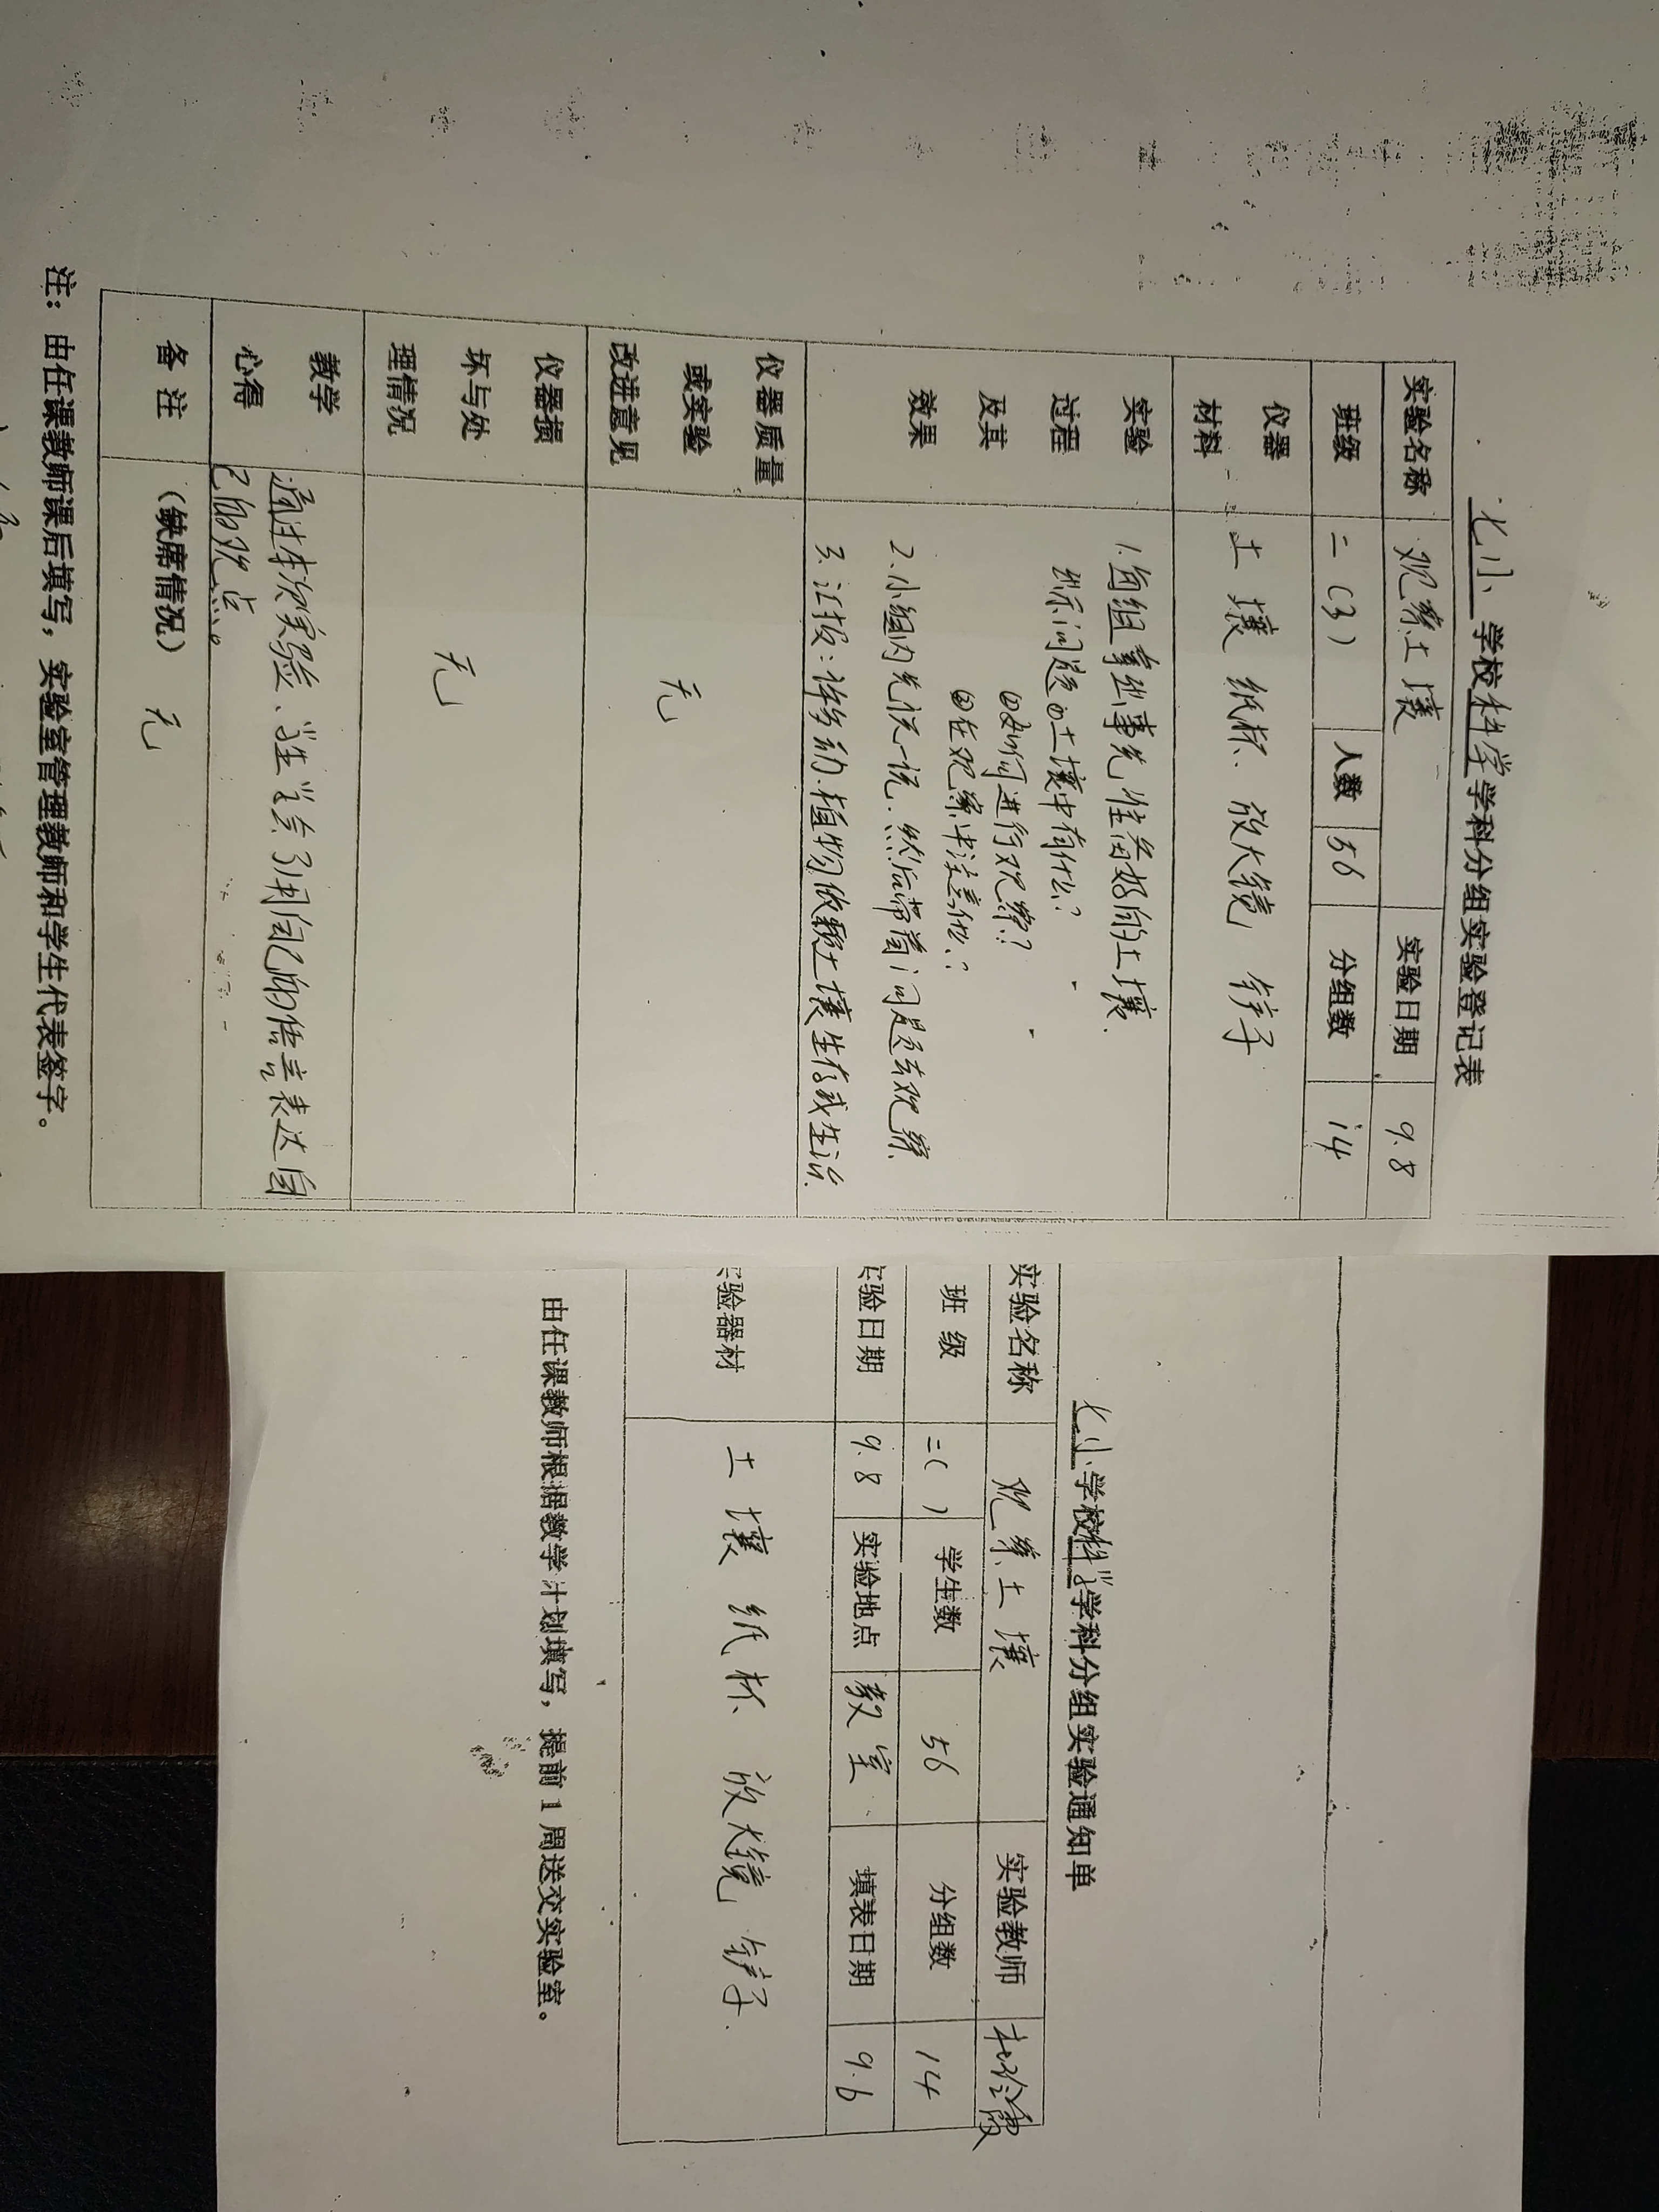 七小 学校科学学科分组实验登记表
实验名称 观察土壤 实验日期 9.8
班级 二(3) 人数 56 分组数 14
仪器材料 土壤 纸杯、放大镜 铲子
实验过程及其效果
1.每组拿出事先准备好的土壤.
出示问题①土壤中有什么?
②如何进行观察?
③在观察中注意什么?
2.小组内先说一说.然后带着问题去观察.
3.汇报:许多动.植物依赖土壤生存或生活.
仪器质量或实验改进意见 无
仪器损坏与处理情况 无
教学心得 通过本次实验、学生学会了用自己的语言表达自
己的观点。
备注 (缺席情况) 无
注:由任课教师课后填写,实验室管理教师和学生代表签字。
七小学校科学学科分组实验通知单
实验名称 观察土壤 实验教师
班级 二( ) 学生数 56 分组数 14
实验日期 9.8 实验地点 教室 填表日期 9.6
实验器材 土壤 纸杯 放大镜 铲子.
由任课教师根据教学计划填写,提前1周送交实验室。